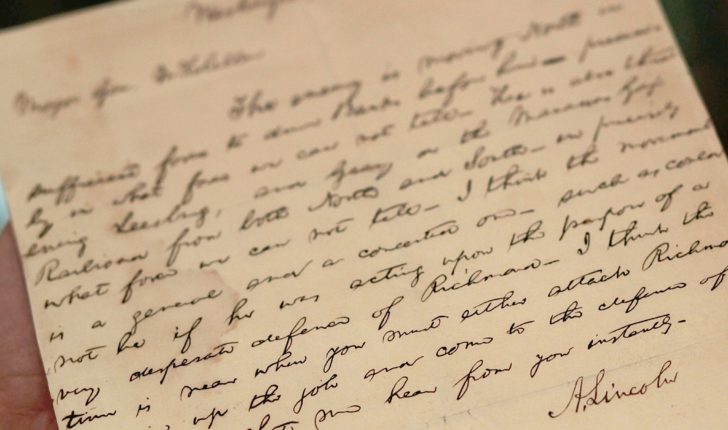 Washing
Major Gen McClellan
The enemy is moving North in
sufficient force to drive Banks before him— precise
ly in what force we can not tell— He is also threat
ening Leesburg, and Geary on the Manassas Gap
Railroad from both North and South— in precisely
what force we can not tell— I think the movement
is a general and a concerted one— such as could
not be if he was acting upon the purpose of a
very desperate defence of Richmond— I think the
time is near when you must either attack Richmo
up the job and come to the defence of
me hear from you instantly—
A. Lincoln